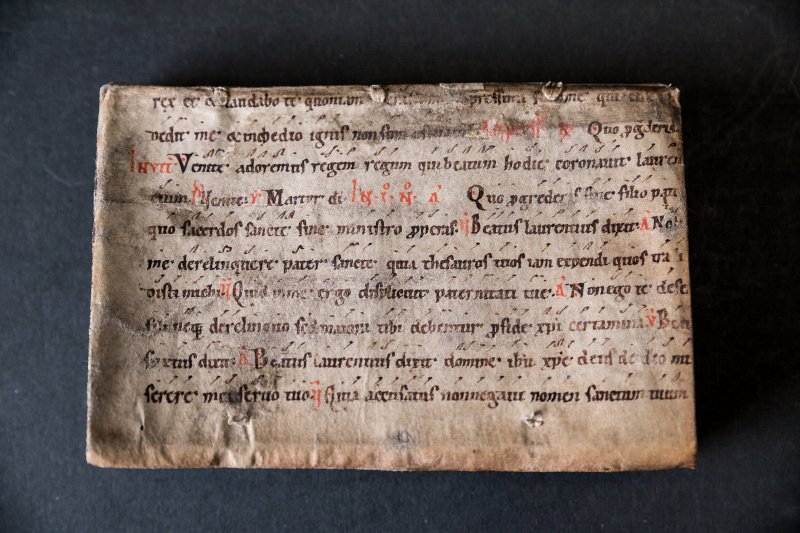 rex et collaudabo te quoniam
uedit me & in medio ignis non sum Quo ꝓgrederis
Inuit Venite adoremus regem regum qui beatum hodie coronauit lauren
cium. ps Venite. V Martyr di In i. N. a Quo progrederis sine filio pat
quo sacerdos sancte sine ministro pperas. Beatus laurentius dixit. A No
me derelinquere pater sancte quia thesauros tuos iam expendi quos tra
disti michi Quid in me ergo displicuit paternitati tue. A Non ego te dese
fili neq derelinquo sed maiora tibi debentur p fide xpi certamina V Bea
syxtus dixit. A Beatus laurentius dixit domine ihu xpe deus de deo mi
serere mei seruo tuo Quia accusatus non negaui nomen sanctum tuum